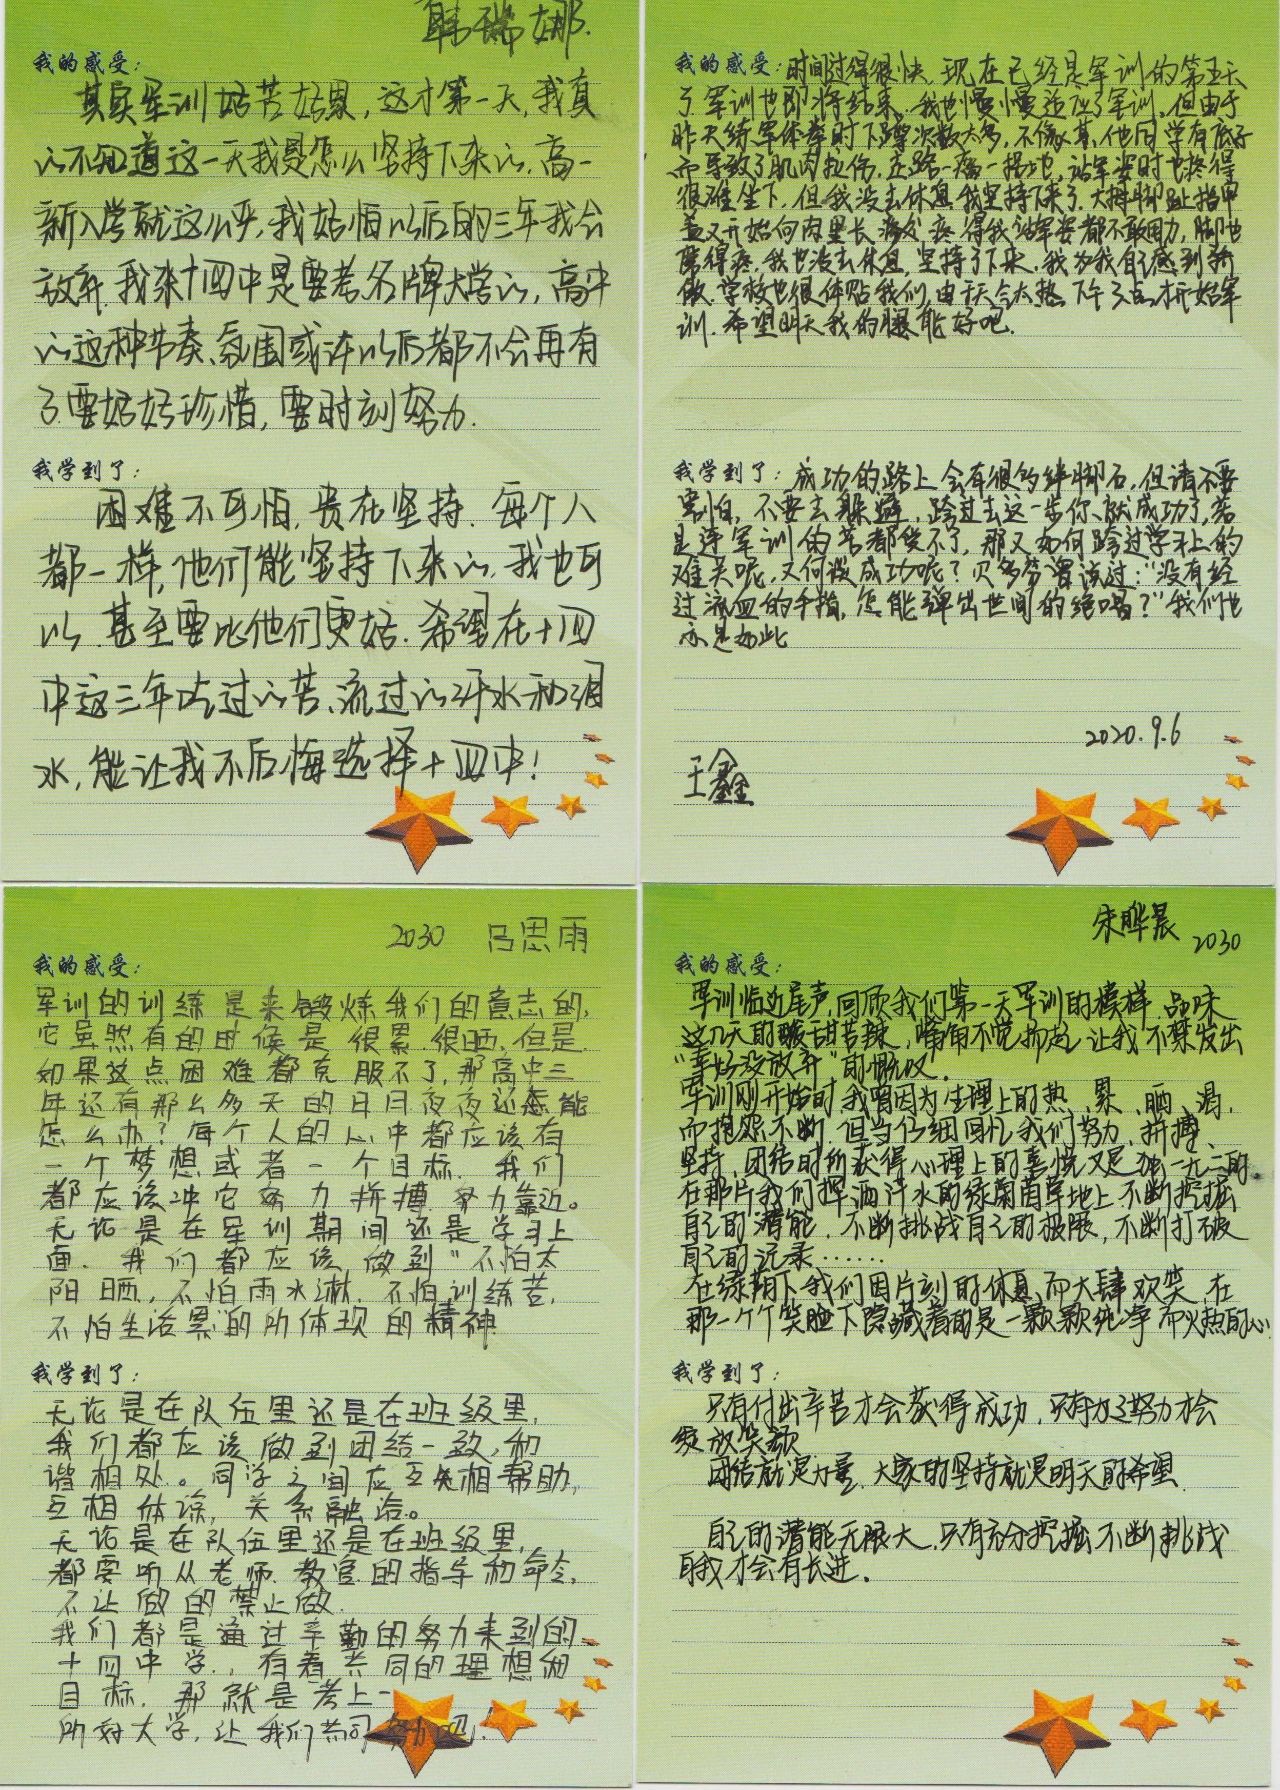 韩瑞娜.
我的感受：
其实军训好苦好累，这才第一天，我真
的不知道这一天我是怎么坚持下来的.高一
新入学就这么严，我好怕以后的三年我会
放弃.我来十四中是要考名牌大学的，高中
的这种节奏、氛围或许以后都不会再有
了.要好好珍惜，要时刻努力.
我学到了：
困难不可怕，贵在坚持.每个人
都一样，他们能坚持下来的，我也可
以.甚至要比他们更好.希望在十四
中这三年吃过的苦、流过的汗水和泪
水，能让我不后悔选择十四中！
我的感受：时间过得很快，现在已经是军训的第五天
了军训也即将结束，我也慢慢适应了军训，但由于
昨天练军体拳时下蹲次数太多，不像其他同学有底子
而导致了肌肉拉伤.走路一瘸一拐地，站军姿时也疼得
很难坐下，但我没去休息我坚持下来了.大拇脚趾指甲
盖又开始向肉里长，疼得我站军姿都不敢用力，脚也
磨得疼，我也没去休息，坚持了下来.我为我自己感到骄
傲.学校也很体贴我们，由于天气太热下午3点才开始军
训.希望明天我的腿能好吧.
我学到了：成功的路上会有很多绊脚石，但请不要
害怕，不要去躲避，跨过去这一步你就成功了，若
是连军训的苦都受不了，那又如何跨过学习上的
难关呢，又何谈成功呢？贝多芬曾说过："没有经
过流血的手指，怎能弹出世间的绝唱？"我们也
亦是如此
2020.9.6
王鑫
2030 吕思雨
我的感受：
军训的训练是来锻炼我们的意志的，
它虽然有的时候是很累很晒，但是
如果这点困难都克服不了，那高中三
年还有那么多天的日日夜夜还能
怎么办？每个人的心中都应该有
一个梦想或者一个目标.我们
都应该冲它努力拼搏，努力靠近。
无论是在军训期间还是学习上
面.我们都应该做到"不怕太
阳晒，不怕雨水淋.不怕训练苦，
不怕生活累"的所体现的精神
我学到了：
无论是在队伍里还是在班级里，
我们都应该做到团结一致，和
谐相处。同学之间应互相帮助，
互相体谅，关系融洽。
无论是在队伍里还是在班级里，
都要听从老师.教官的指导和命令，
不让做的禁止做.
我们都是通过辛勤的努力来到的
十四中学，有着共同的理想和
目标.那就是考上一
所好大学，让我们共同努力吧！
宋晔晨 2030
我的感受：
军训临近尾声，回顾我们第一天军训的模样，品味
这几天的酸甜苦辣，嘴角不觉扬起，让我不禁发出
"幸好没放弃"的慨叹.
军训刚开始时我曾因为生理上的热、累、晒、渴，
而抱怨不断.但当仔细回忆我们努力，拼搏，
坚持，团结时所获得心理上的喜悦又是独一无二的
在那片我们挥洒汗水的绿茵茵草地上，不断挖掘
自己的潜能，不断挑战自己的极限，不断打破
自己的记录……
在练翔下我们因片刻的休息而大肆欢笑，在
那一个个笑脸下隐藏着的是一颗颗纯净而火热的心
我学到了：
只有付出辛苦才会获得成功，只有为之努力才会
绽放笑颜
团结就是力量，大家的坚持就是明天的希望
自己的潜能无限大，只有充分挖掘，不断挑战
自我才会有长进.